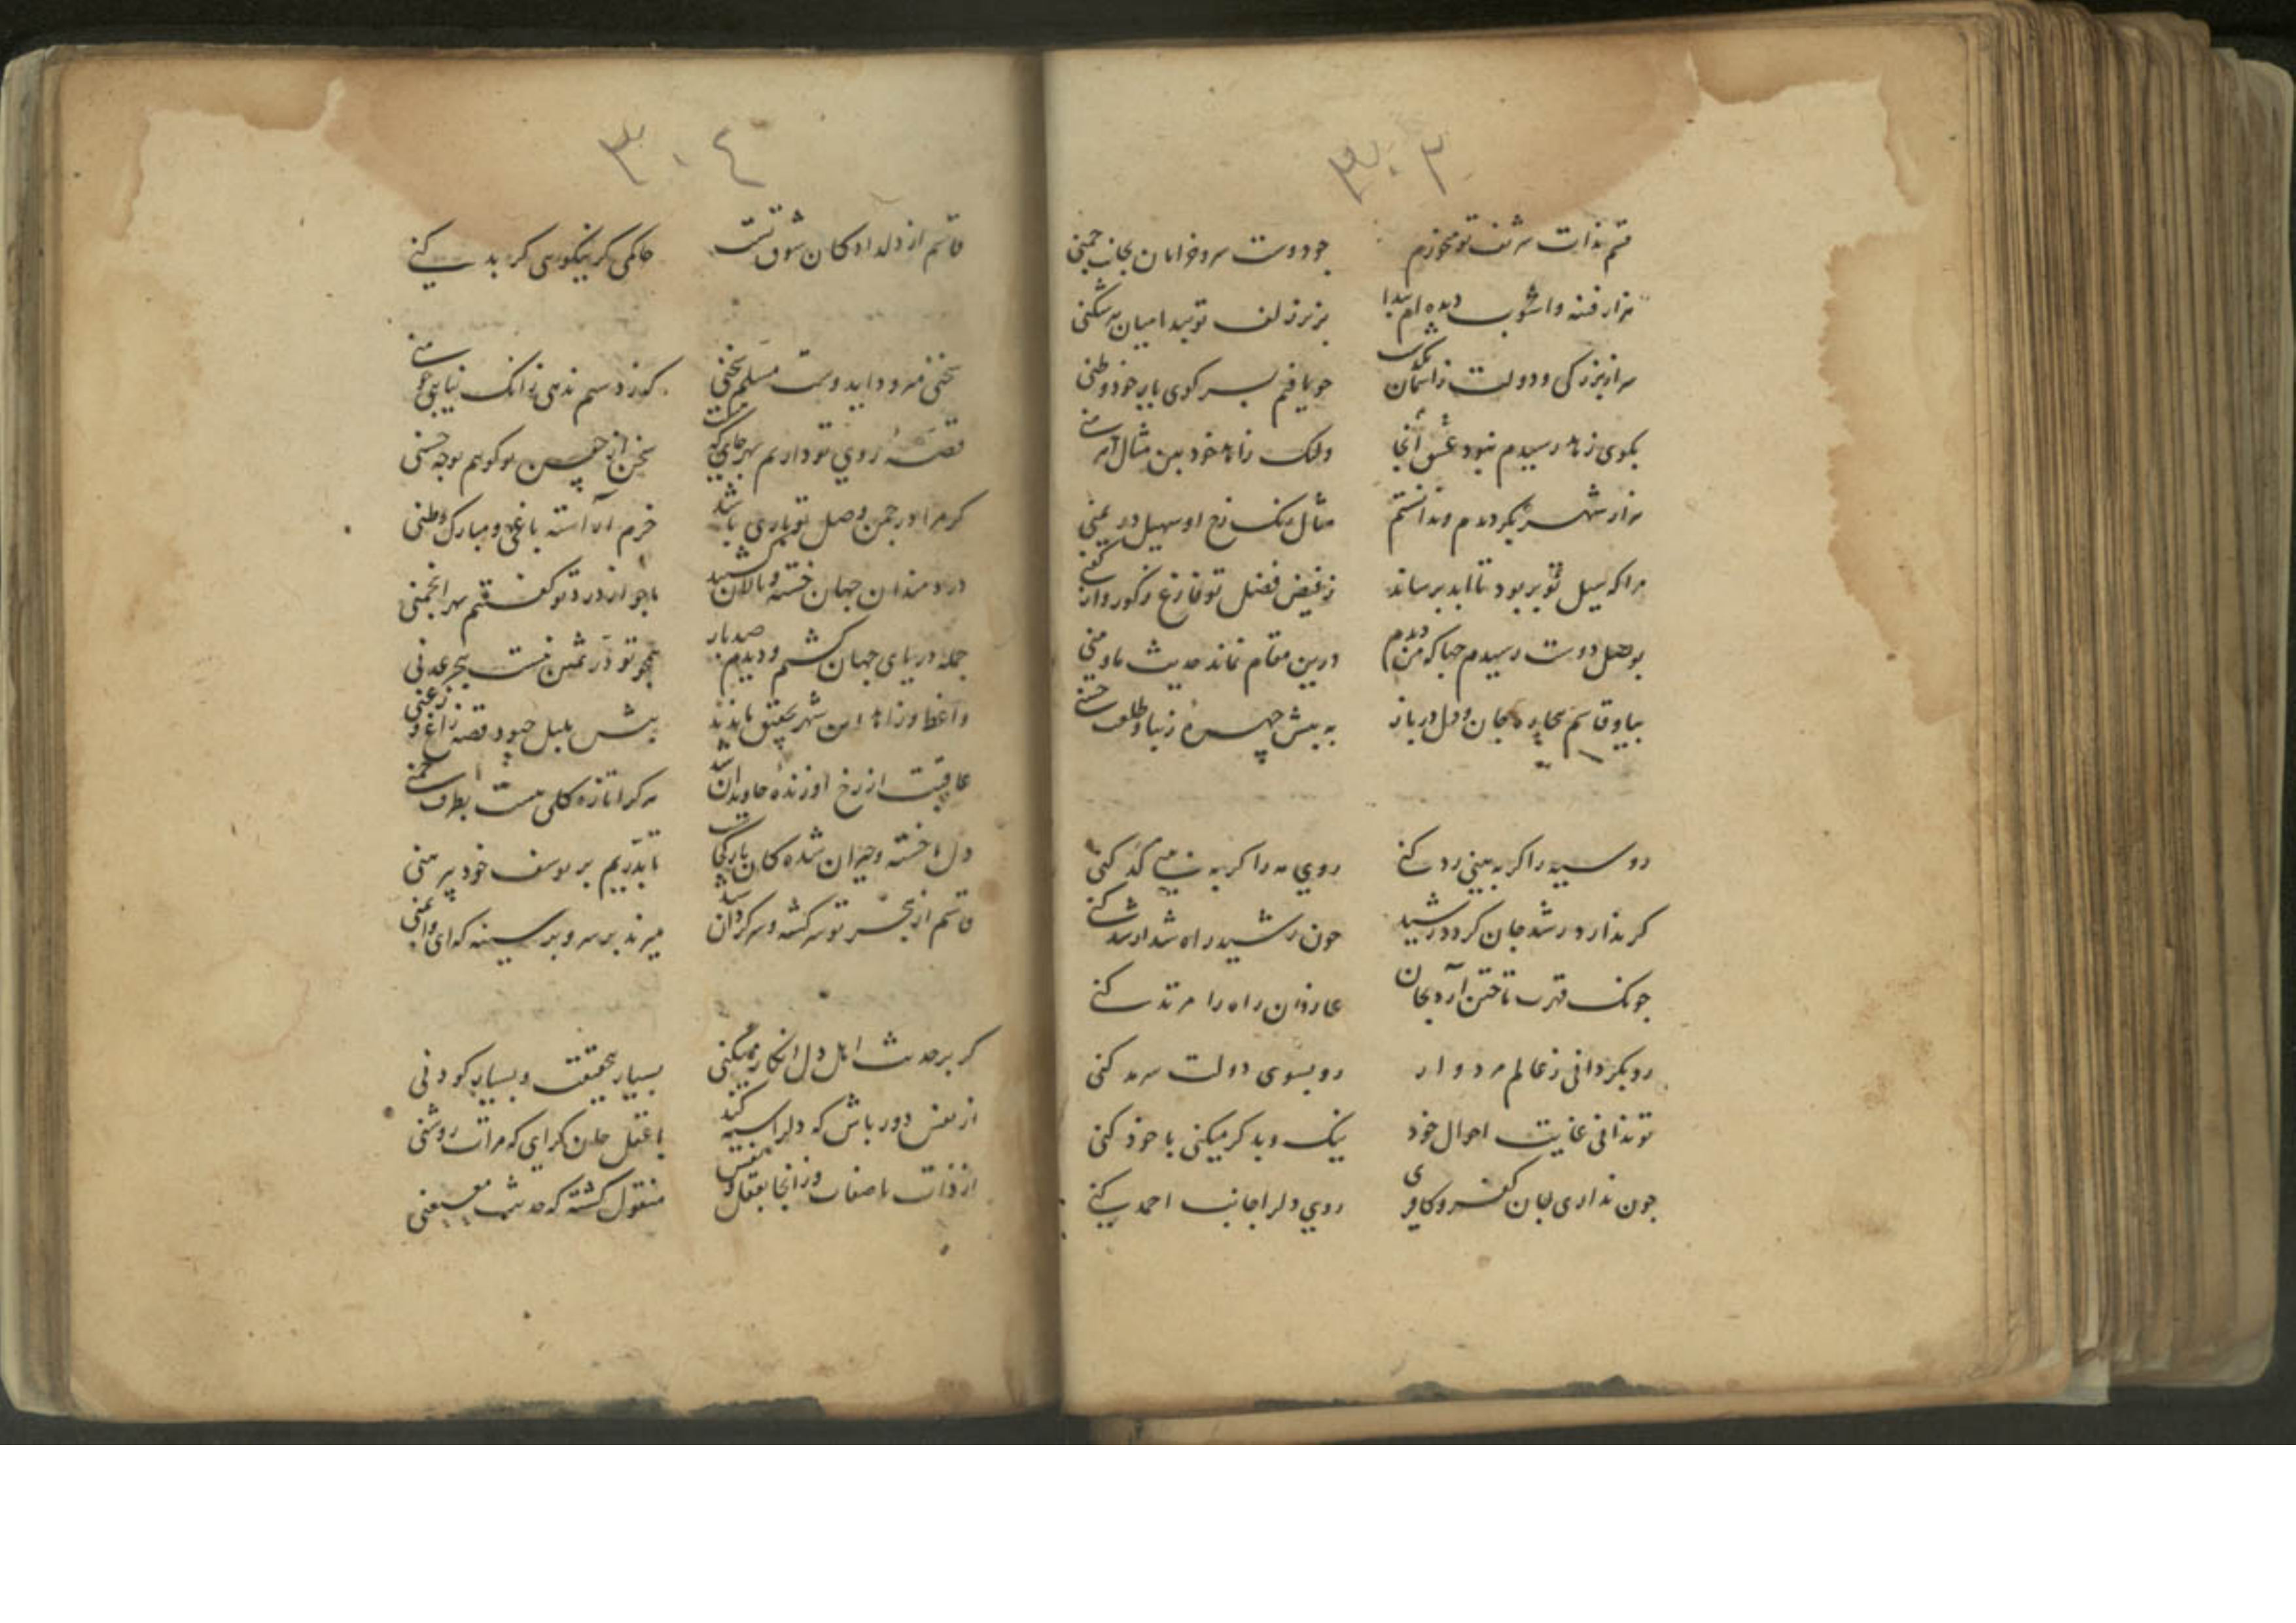 ۳۰۳
قسم بذات شریف تو میخورم
جو دوست سرو خرامان بجانب جمنی
هزار فتنه و اشوب دیده ام پیدا
بزیر زلف تو پیدا میان هر شکنی
هزار بزرگی و دولت ز اسمان
جو یافتم بسر کوی یار خود وطنی
بکوی زاهد رسیدم نبود عشق آنجا
ولیک زاهد خود بین مثال
هزار شهر بکردیدم و ندانستم
مثال رنک رخ او سهیل در یمنی
مرا که سیل تو بربود تا ابد برساند
ز فیض فضل تو فارغ ز کور و از کفنی
بوصل دوست رسیدم جها که من دیدم
درین مقام نماند حدیث ما و منی
بیا و قاسم بیچاره جان و دل در باز
به پیش چهره زیبا و طلعت حسنی
رو سیه را کر به بینی رد کنی
روی مه را کر به بینی کد کنی
کر ندارد رشد جان کردد رشید
جون رشید راه شد ارشد کنی
جونک قهرت تاختن آرد بجان
عارفان راه را مرتد کنی
رو بکردانی ز عالم مردوار
رو بسوی دولت سرمد کنی
تو ندانی غایت احوال خود
نیک و بد کر میکنی با خود کنی
جون نداری جان کفر و کافری
روی دلرا جانب احمد کنی
۳۰٤
قاسم از دلدادکان شوق تست
حاکمی کر نیکویی کر بد کنی
سخنی فرمود اید وست مسلم سخنی
که زر و سیم ندهی زانک نیابی
قصه روی تو دارم بهر جای که هست
سخن از جنس نکویم بوجه حسنی
کر مرا در جمن وصل تو باری باشد
خرم آراسته باغی و مبارک وطنی
دردمندان جهان خسته و نالان شدند
ما جو از درد تو کفتیم بهر انجمنی
جمله دریای جهان کشتم و دیدم صد بار
همجو تو در ثمین نیست ببحر عدنی
واعظ و زاهد این شهر بعشق
پیش بلبل جبود قصه زاغ و زغنی
عاقبت از رخ او زنده جاویدان شد
هر کرا تازه کلی هست بطرف جمنی
دل ما خسته و حیران شده کان یار کجاست
تا بدریم بر یوسف خود پیرهنی
قاسم از هجر تو سرکشته و سرکردان شد
میزند بر سر و بر سینه که ای وای منی
کر بر حدیث اهل دل انکار میکنی
بسیار بی حقیقت و بسیار کودنی
از نفس دور باش که دلرا سیه کند
با عقل جان کرای که مرات روشنی
از ذات با صفات وز انجا بعقل و نفس
منقول کشته که حدیث